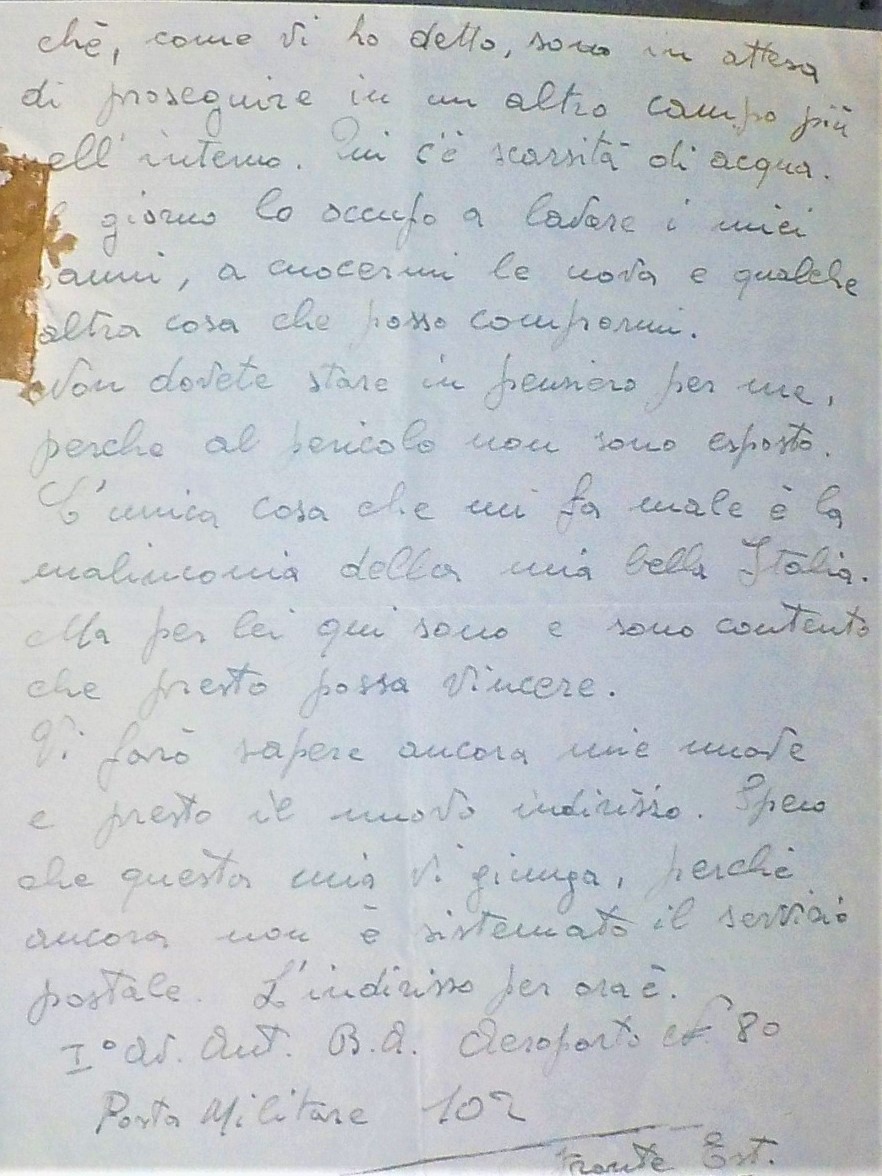 chè, come vi ho detto, sono in attesa
di proseguire in un altro campo più
nell'interno. Qui c'è scarsità di acqua.
giorno lo occupo a lavare i miei
panni, a cuocermi le uova e qualche
altra cosa che posso comprarmi.
Non dovete stare in pensiero per me,
perche al pericolo non sono esposto.
L'unica cosa che mi fa male è la
malinconia della mia bella Italia.
Ma per lei qui sono e sono contento
che presto possa vincere.
Vi farò sapere ancora mie nuove
e presto il nuovo indirizzo. Spero
che questa mia vi giunga, perchè
ancora non è sistemato il servizio
postale. L'indirizzo per ora è.
I° Aut. B.A. Aeroporto 80
Posta Militare 102
Fronte Est.